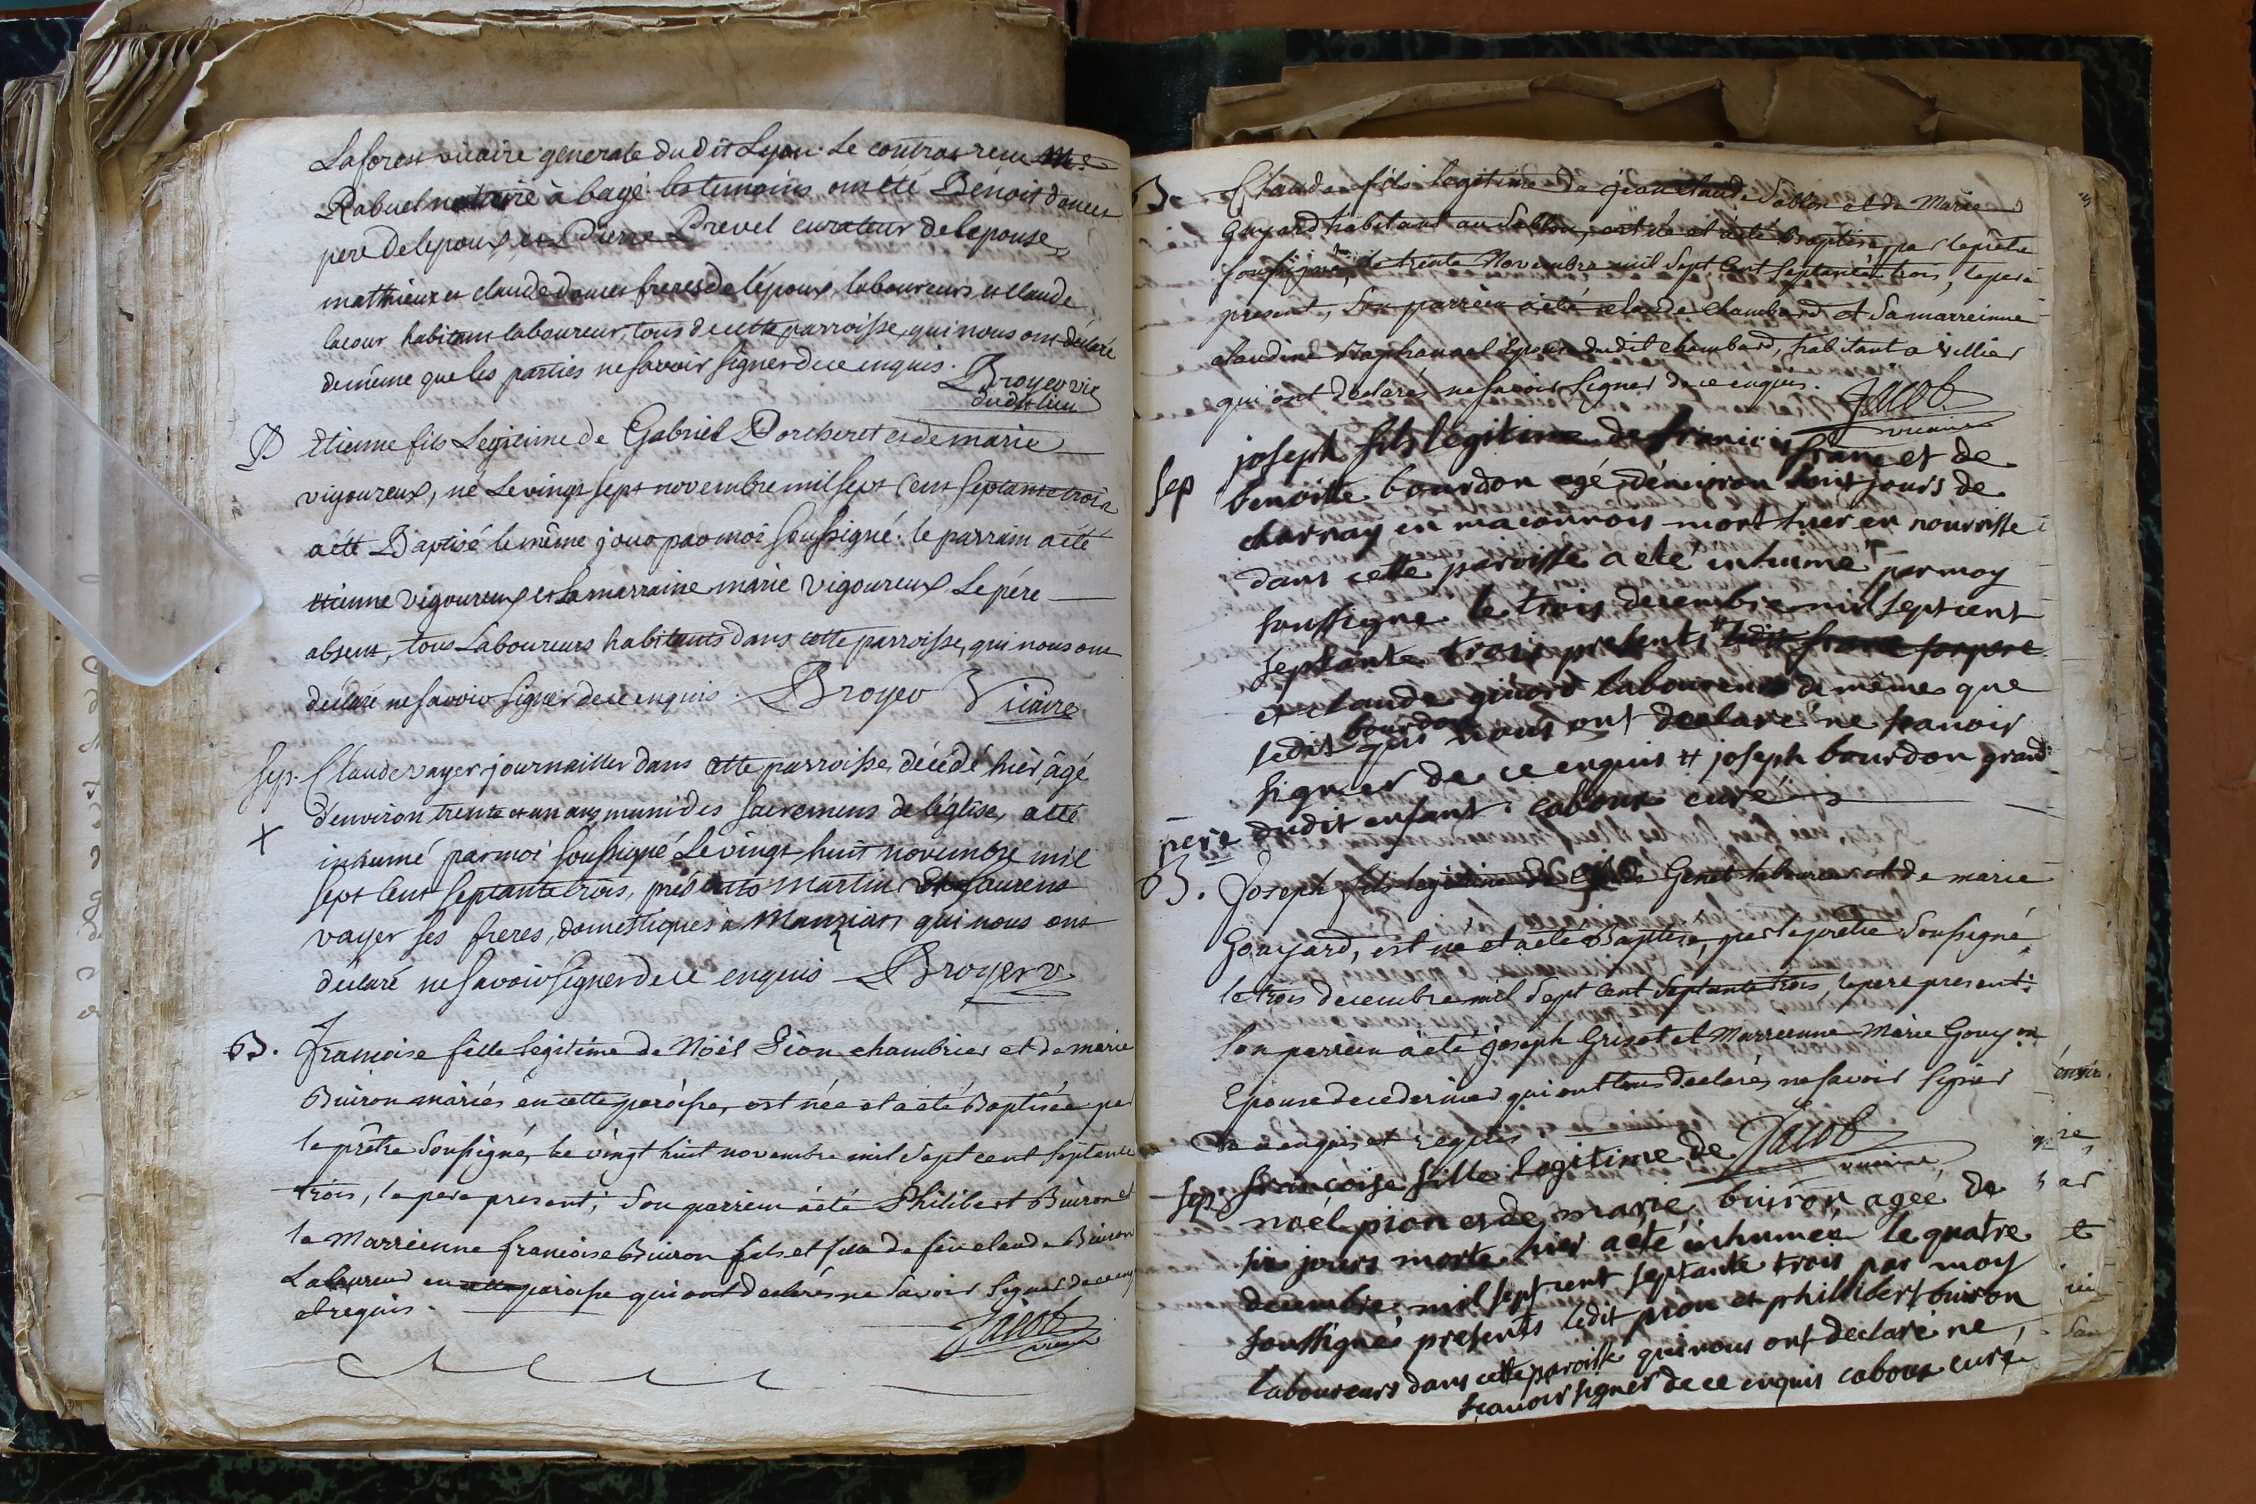 Laforest vicaire generale du dit Lyon. Le contrat reçu Me
Rabuel notaire à bagé. les temoins ont été Benoit doucet
pere de lepoux, et Pierre Prevel curateur de lepouse,
mathieux et claude doucet freres de l'époux, laboureurs et claude
lacour habitant laboureur, tous de cette parroisse, qui nous ont déclaré
de même que les parties ne savoir signer de ce enquis.
Broyer vic
dudit lieu
B Etienne fils Legitime de Gabriel Porcheret et de marie
vigoureux, né Le vingt sept novembre mil sept Cent septante trois
a été Baptisé le même jour par moi soussigné. le parrain a été
etienne vigoureux et La marraine marie vigoureux. Le pére
absent, tous Laboureurs habitants dans cette parroisse, qui nous ont
declaré ne savoir signer de ce enquis. Broyer Vicaire
Sep. Claude vayer journailler dans cette parroisse, décédé hier, âgé
d'environ trente et un ans, muni des sacremens de l'église, a été
X inhumé par moi soussigné Le vingt huit novembre mil
sept Cent septante trois, présents martin Et Laurent
vayer ses freres, domestiques a Manziat, qui nous ont
déclaré ne savoir signer de ce enquis Broyer v.
B. françoise fille legitime de Nöel Pion chambrier et de marie
Buiron mariés en cette paroisse, est née et a été Baptisée par
le prêtre soussigné, Le vingt huit novembre mil sept cent septante
trois, le pere present; son parrein a été Philibert Buiron et
la Marreinne françoise Buiron fils et fille de feu claude Buiron
Laboureur en cette paroisse qui ont declarés ne savoir signer de ce enq
et requis.
Jacob
vicaire
B. Claude fils legitime de jean claude Sablon et de Marie
Guyard habitant au Sablon, est né et a été Baptisé par le prêtre
soussigné, le trente Novembre mil sept Cent septante trois, le pere
present, son parrein a été claude chambard et Sa marreinne
claudine Raphanael Epouse dudit chambard, habitant a villier
qui ont declarés ne savoir signer de ce enquis.
Jacob
vicaire
Sep joseph fils légitime de francois franc et de
benoitte bourdon agé d'environ huit jours de
charnay en maconnois mort hier en nourrisse
dans cette paroisse a eté inhumé par moy
soussigne le trois decembre mil sept cent
septante trois presents # ledit franc son pere
et claude guiard laboureur de mêmes que
ledit bourdon qui nous ont declaré ne scavoir
signer de ce enquis # joseph bourdon grand
pere dudit enfant. caboux curé
B. Joseph fils legitime de Genet laboureur et de marie
Gouyard, est né et a été Baptisé, par le prêtre soussigné
le trois decembre mil sept Cent septante trois, le pere present:
son parrein a été joseph Griset et Marreinne Marie Gouyon
Epouse de ce dernier qui ont tous declarés ne savoir signer
de ce enquis et requis
Jacob
vicaire
Sep françoise fille legitime de
noél pion et de marie buiron agée de
six jours morte hier a été inhumée le quatre
decembre mil sept cent septante trois par moy
soussigné presents ledit pion et phillibert buiron
laboureurs dans cette paroisse qui nous ont declaré ne
scavoir signer de ce enquis caboux curé